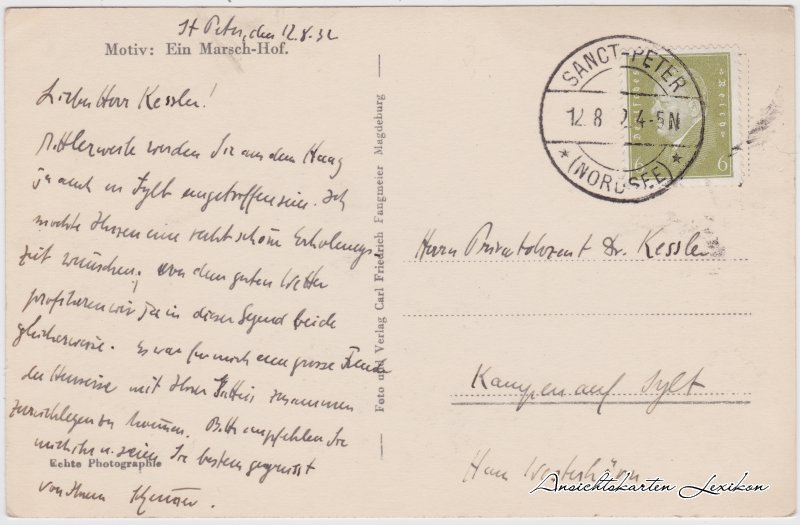 St Peter, den 12.8.32
Motiv: Ein Marsch-Hof.
Lieber Herr Kessler!
Mittlerweile werden Sie aus dem Haag
ja auch in Sylt eingetroffen sein. Ich
möchte Ihnen eine recht schöne Erholungs-
zeit wünschen. Von dem guten Wetter
profitieren wir ja in dieser Gegend beide
gleicherweise. Es war für mich eine grosse Freude
die Hinreise mit Ihrer zusammen
zurücklegen zu können. Bitte empfehlen Sie
mich ihr u. seien Sie bestens gegrüsst
Echte Photographie
von Ihrem
Foto und Verlag Carl Friedrich Fangmeier Magdeburg
SANCT-PETER
12.8 2.4-5N
(NORDSEE)
Deutsches Reich
6 6
Herrn Privatdozent Dr. Kessler
Kampen auf Sylt
Haus
Ansichtskarten Lexikon